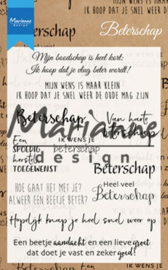 Marianne
DESIGN
Beterschap
Mijn boodschap is heel kort:
Ik hoop dat je vlug beter wordt!
MIJN WENS IS MAAR KLEIN
IK HOOP DAT JE SNEL WEER DE OUDE MAG ZIJN
Beterschap
Van hart
Marianne
design
Een
SPOEDIG
beterschap
herstel
TOEGEWENST
Beterschap
HOE GAAT HET MET JE?
AL WEER EEN BEETJE BETER?
Heel veel
Beterschap
Hopelijk kun je heel snel weer op
Een beetje aandacht en een lieve groet
dat doet je vast en zeker goed!